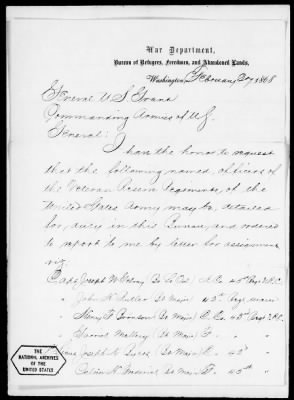 War Department,
Bureau of Refugees, Freedmen, and Abandoned Lands,
Washington, February 20, 1868
General U S Grant
Commanding Armies of U.S.
General:
I have the honor to request
that the following named officers of
the Veteran Reserve Regiments, of the
United States Army may be detailed
for duty in this Bureau, and ordered
to report to me by letter for assignment
viz
Capt Joseph W (Bt Lt Col) Co 45th Regt V.R.C.
" John (Bt Major) 45th Regt
" (Bt Major) Co 45th Regt V.R.C.
" Daniel (Bt Major)
Joseph (Bt Major) 45th
" (Bt Major) 45th
THE
NATIONAL ARCHIVES
OF THE
UNITED STATES